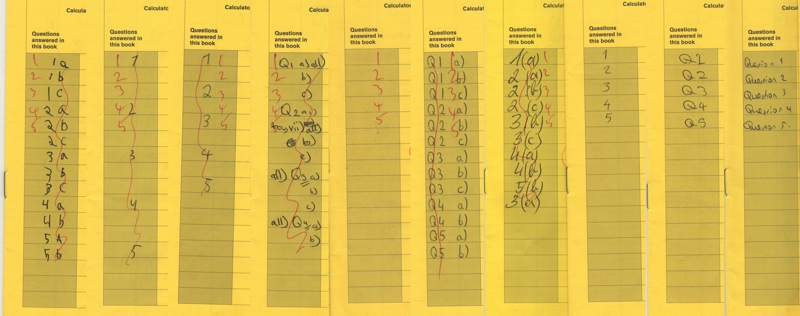 Calcula
Questions
answered in
this book
1 1a
2 1b
3 1c
4 2a
5 2b
2c
3a
3b
3c
4a
4b
5a
5b
Calculatc
Questions
answered in
this book
1 1
2
3
4 2
5
3
4
5
Calculato
Questions
answered in
this book
1 1
2
2 3
4
3 5
4
5
Calcula
Questions
answered in
this book
1 (Q1 a) all)
2 b)
3 c)
4 (Q2 a)
b)
c)
all) (Q3 a)
b)
c)
all) (Q4 a)
b)
Calculator
Questions
answered in
this book
1
2
3
4
5
Calcula
Questions
answered in
this book
Q1 a)
Q1 b)
Q1 c)
Q2 a)
Q2 b)
Q2 c)
Q3 a)
Q3 b)
Q3 c)
Q4 a)
Q4 b)
Q5 a)
Q5 b)
Calculat
Questions
answered in
this book
1(a) 1
2(a) 2
2(b) 3
2(c) 4
3(b) 5
3(c)
4(a)
4(b)
5(b)
3(a)
Calculato
Questions
answered in
this book
1
2
3
4
5
Calcula
Questions
answered in
this book
Q1
Q2
Q3
Q4
Q5
Calcula
Questions
answered in
this book
Question 1
Question 2
Question 3
Question 4
Question 5